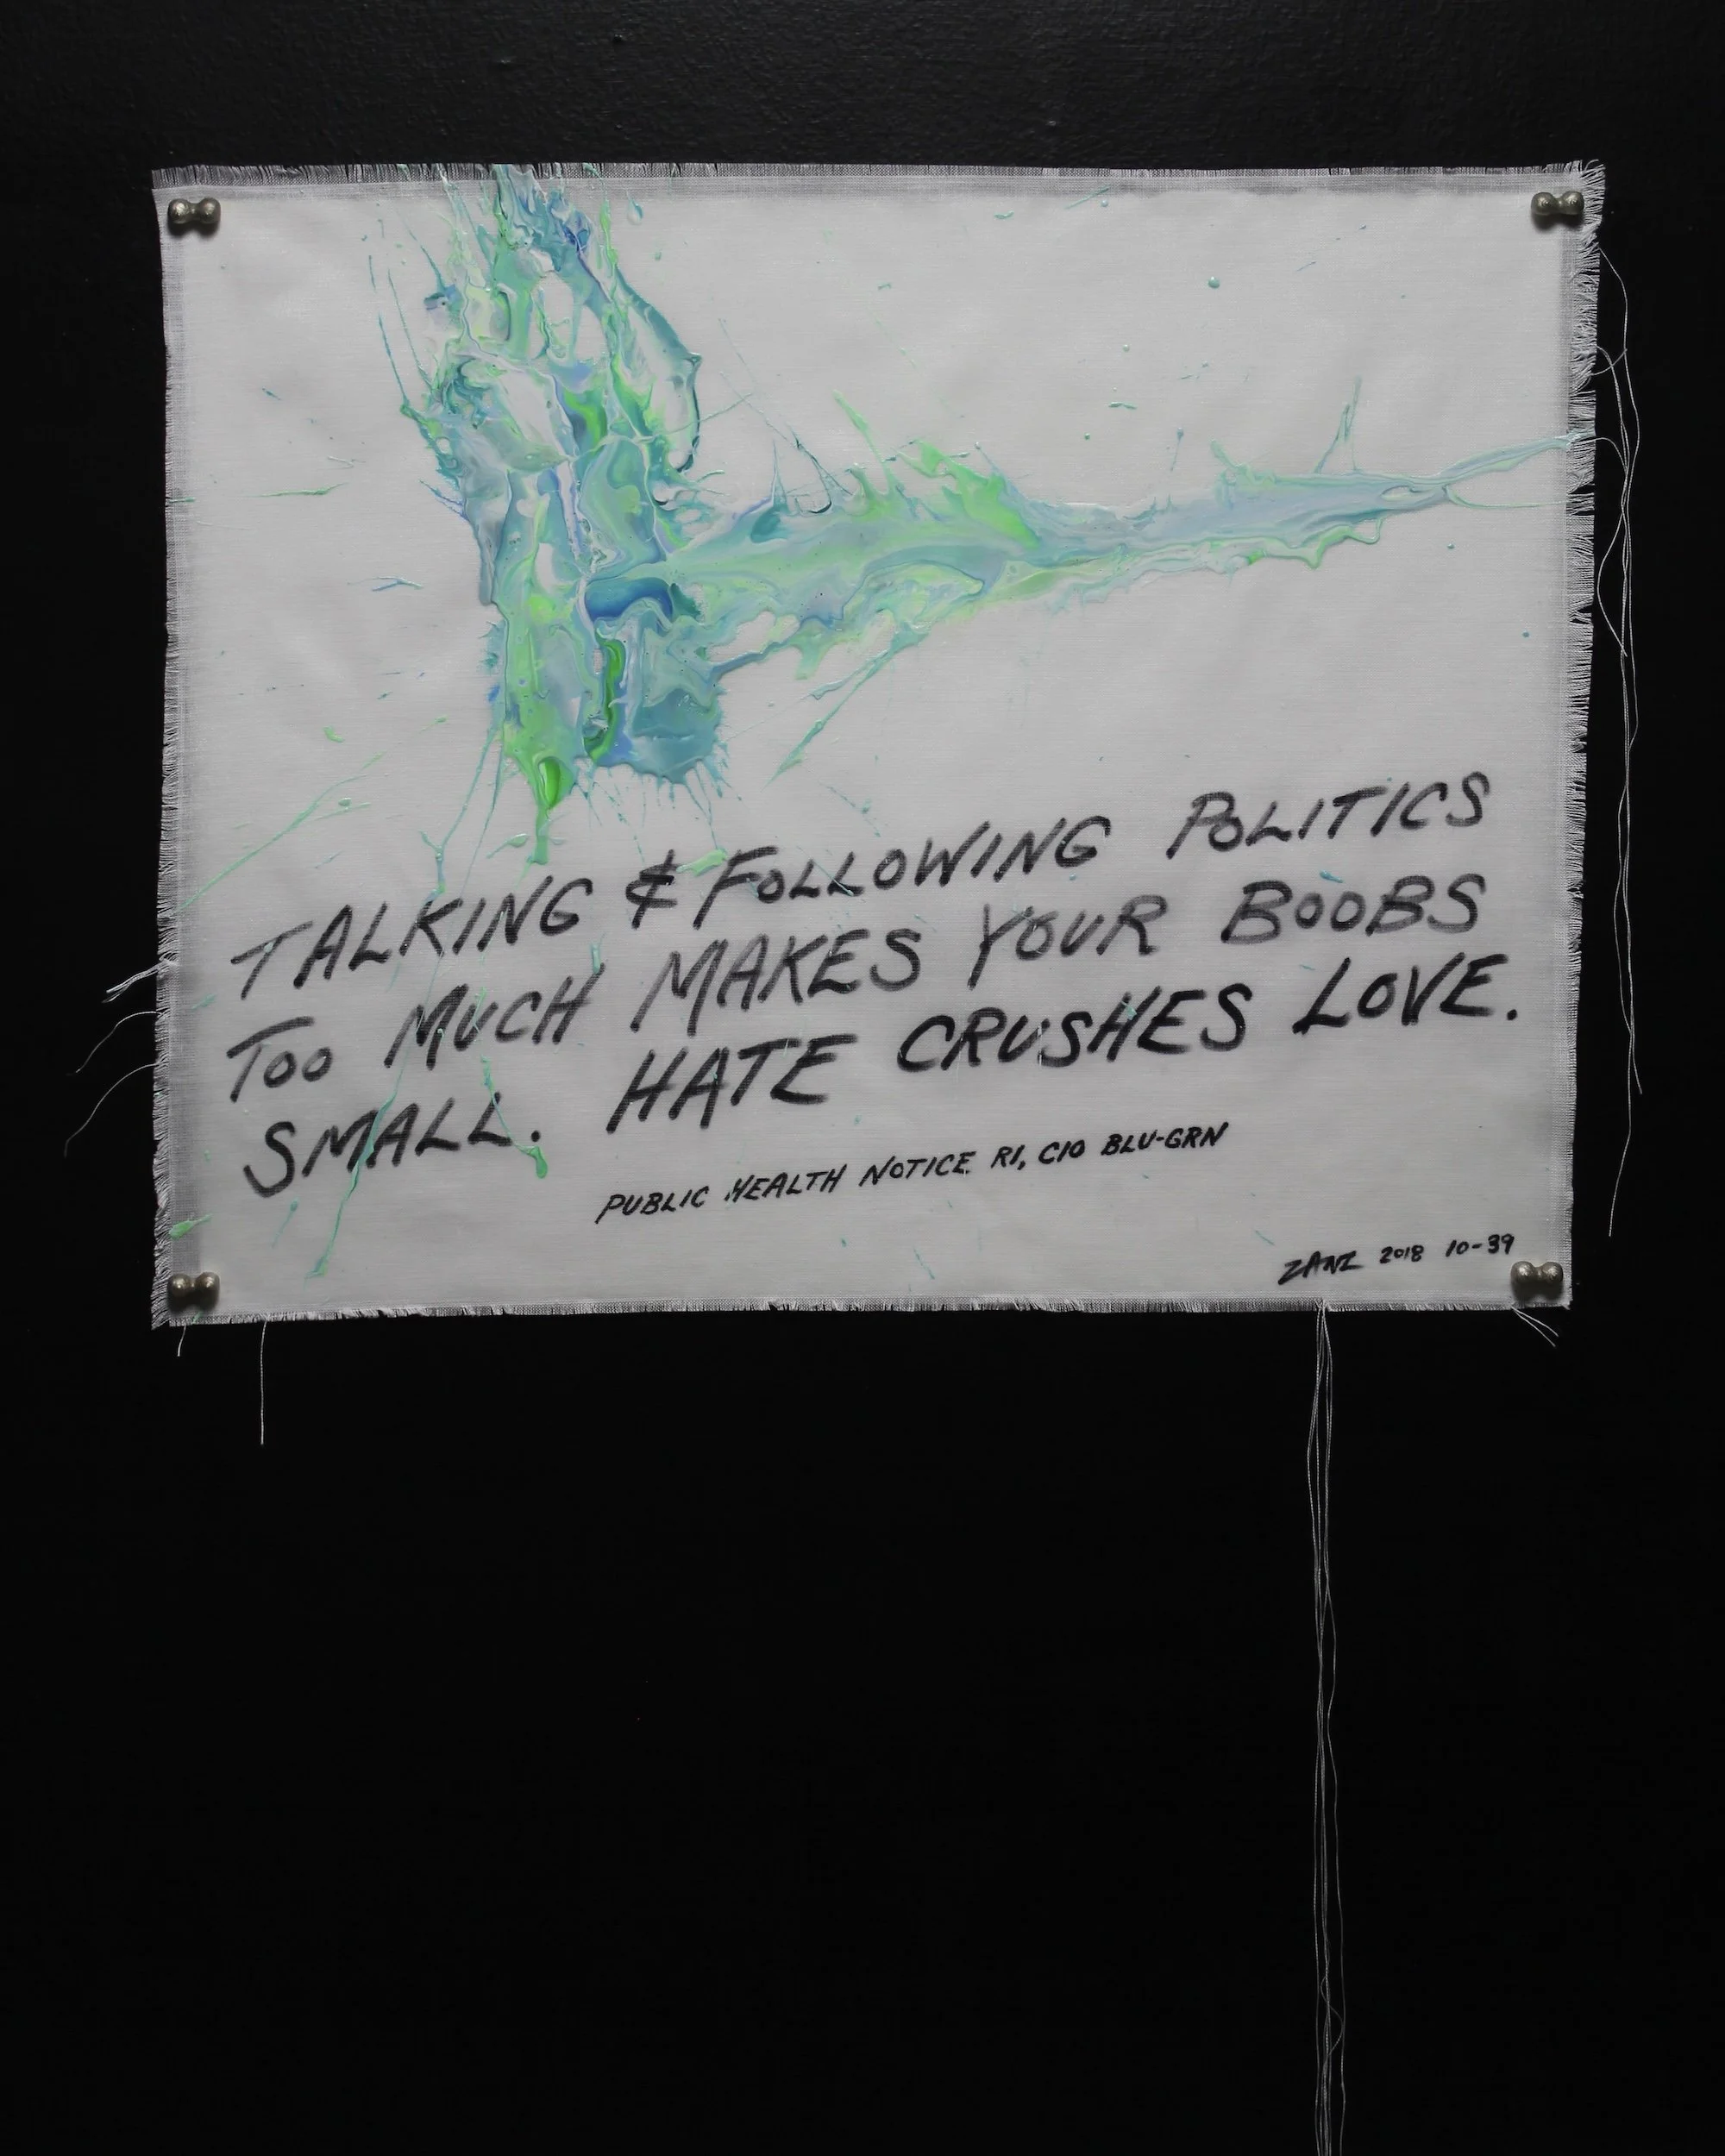 TALKING & FOLLOWING POLITICS
TOO MUCH MAKES YOUR BOOBS
SMALL. HATE CRUSHES LOVE.
PUBLIC HEALTH NOTICE R1, C10 BLU-GRN
ZANZ 2018 10-39